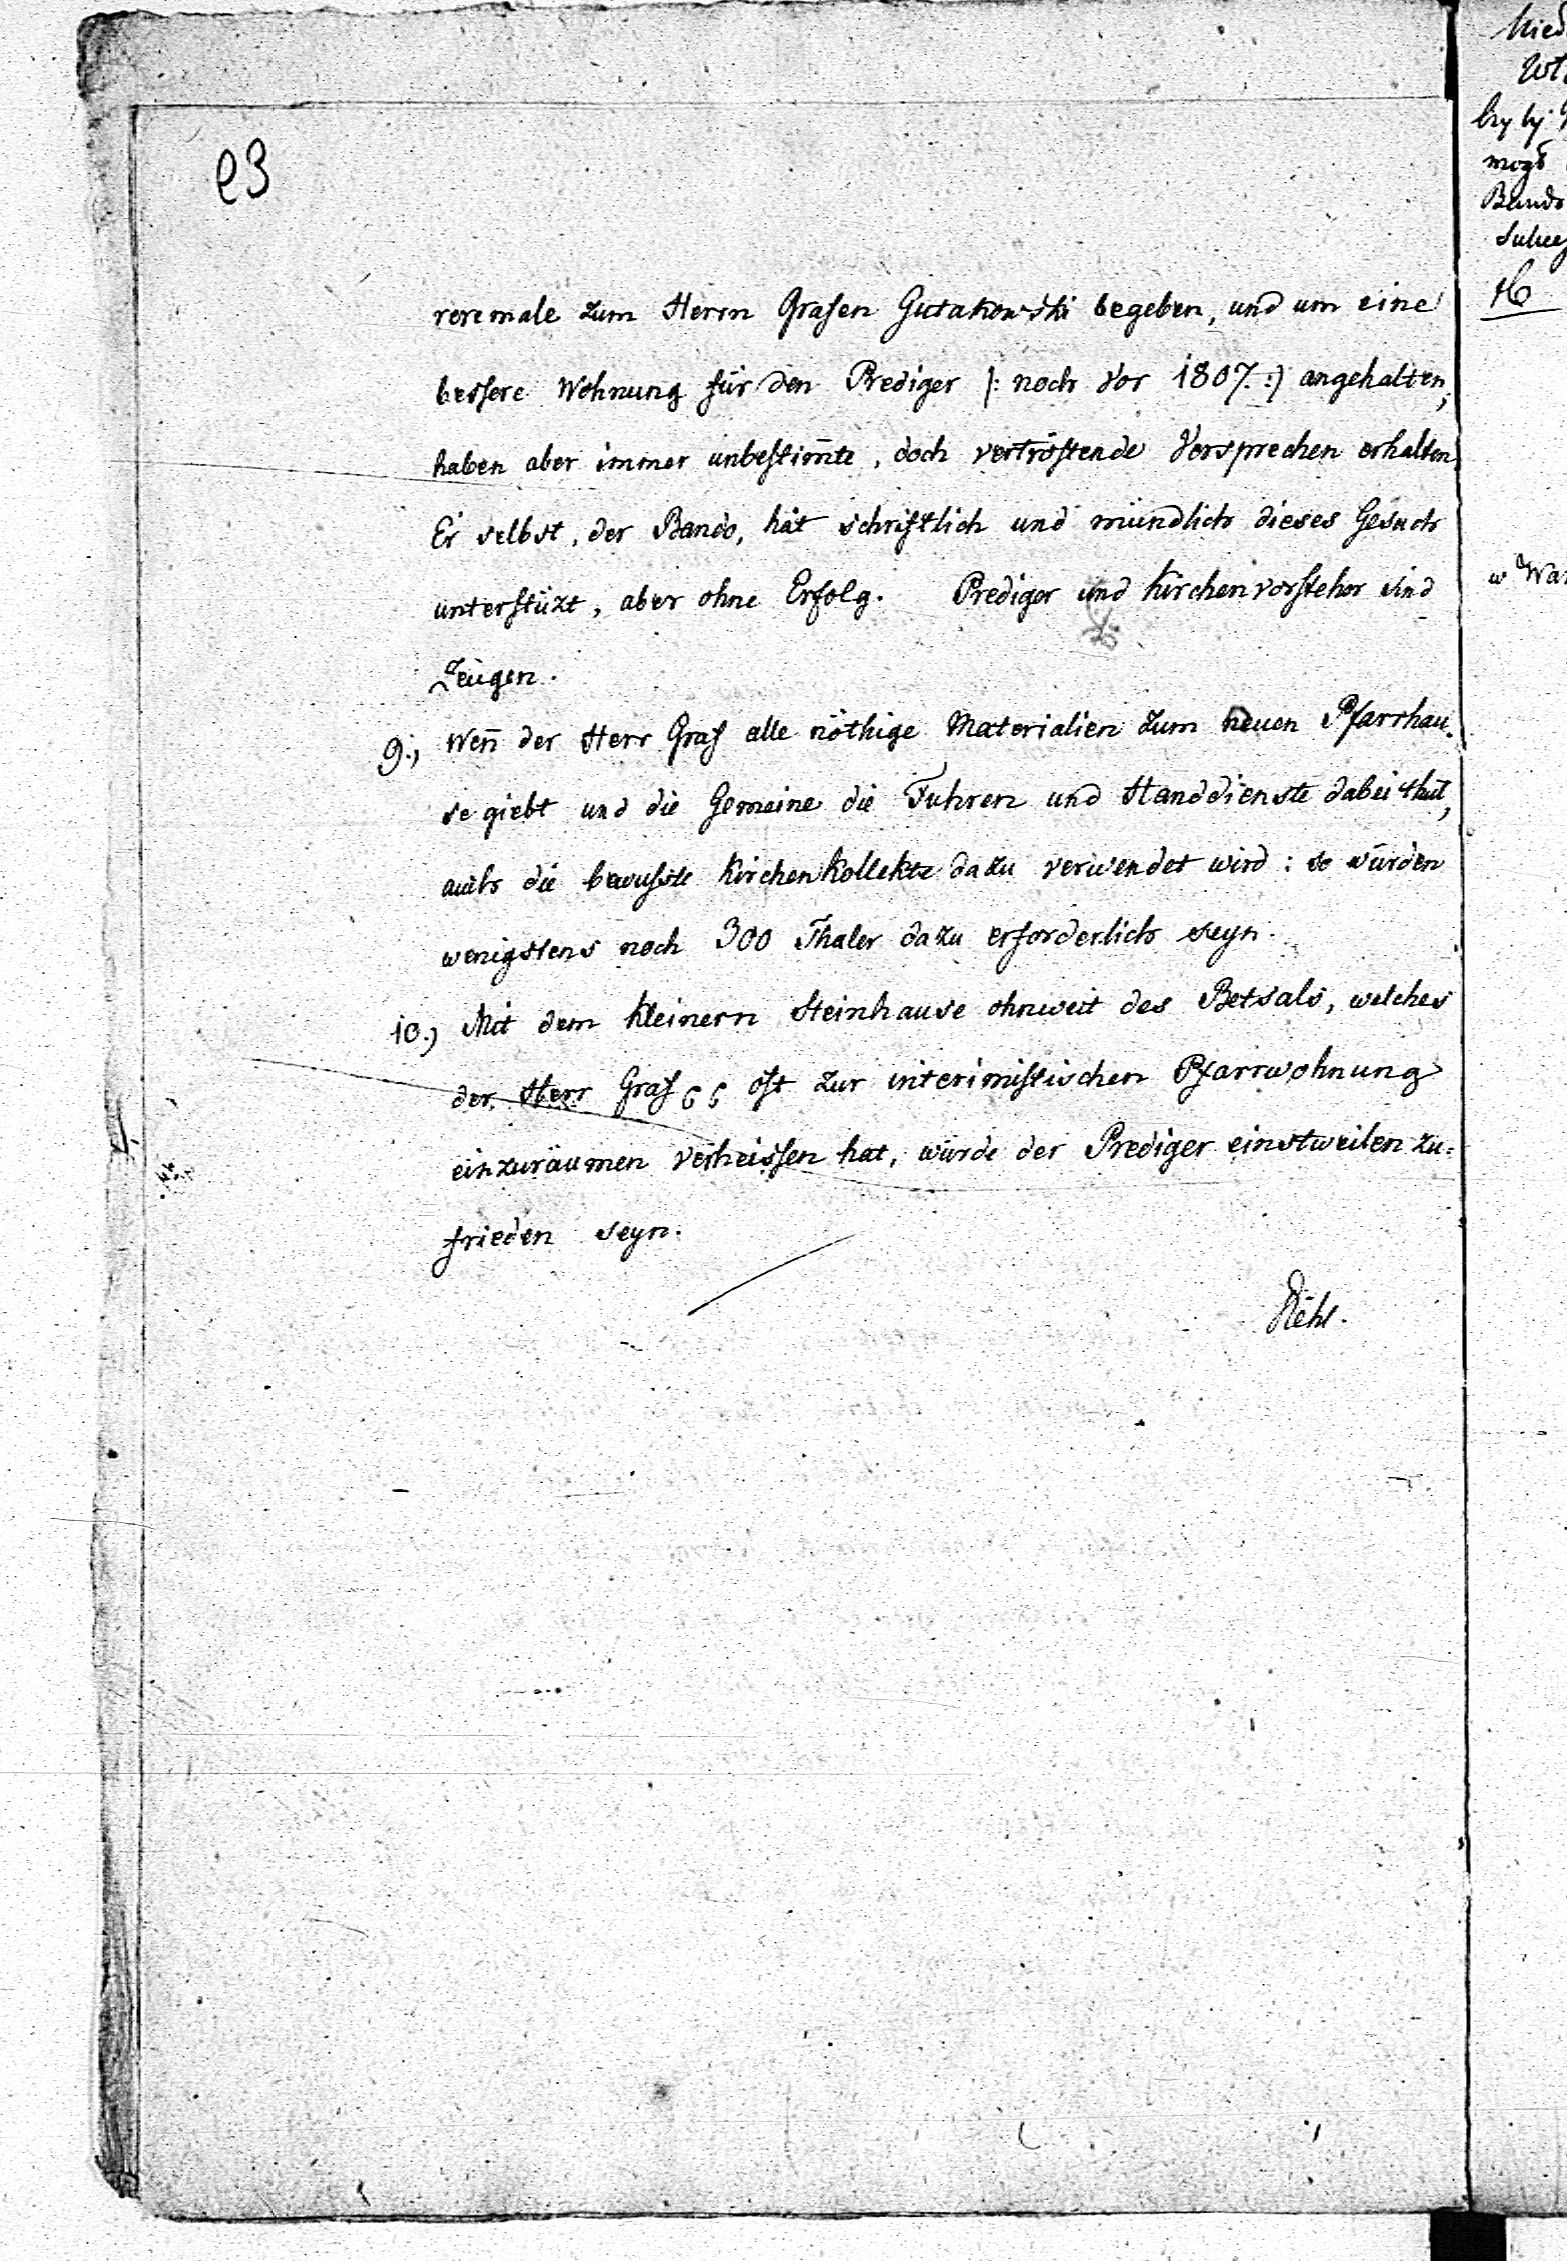 23
reremale zum Herrn Grafen Gutakowski begeben, und um eine
bessere Wohnung für den Prediger |: noch vor 1807. :| angehalten,
haben aber immer unbestim̄te, doch vertröstende Versprechen erhalten.
Er selbst, der Bando, hat schriftlich und mündlich dieses Gesuch
unterstüzt, aber ohne Erfolg. Prediger und Kirchenvorsteher sind
Zeugen.
9., Wen̄ der Herr Graf alle nöthige Materialien zum neuen Pfarrhau-
se giebt und die Gemeine die Fuhren und Handdienste dabei thut,
auch die bewußte Kirchenkollekte dazu verwendet wird: so würden
wenigstens noch 300 Thaler dazu erforderlich seyn.
10.) Mit dem kleinern Steinhause ohnweit des Betsals, welches
der Herr Graf oft zur interimistischen Pfarrwohnung
einzuräumen verheissen hat, würde der Prediger einstweilen zu=
frieden seyn.